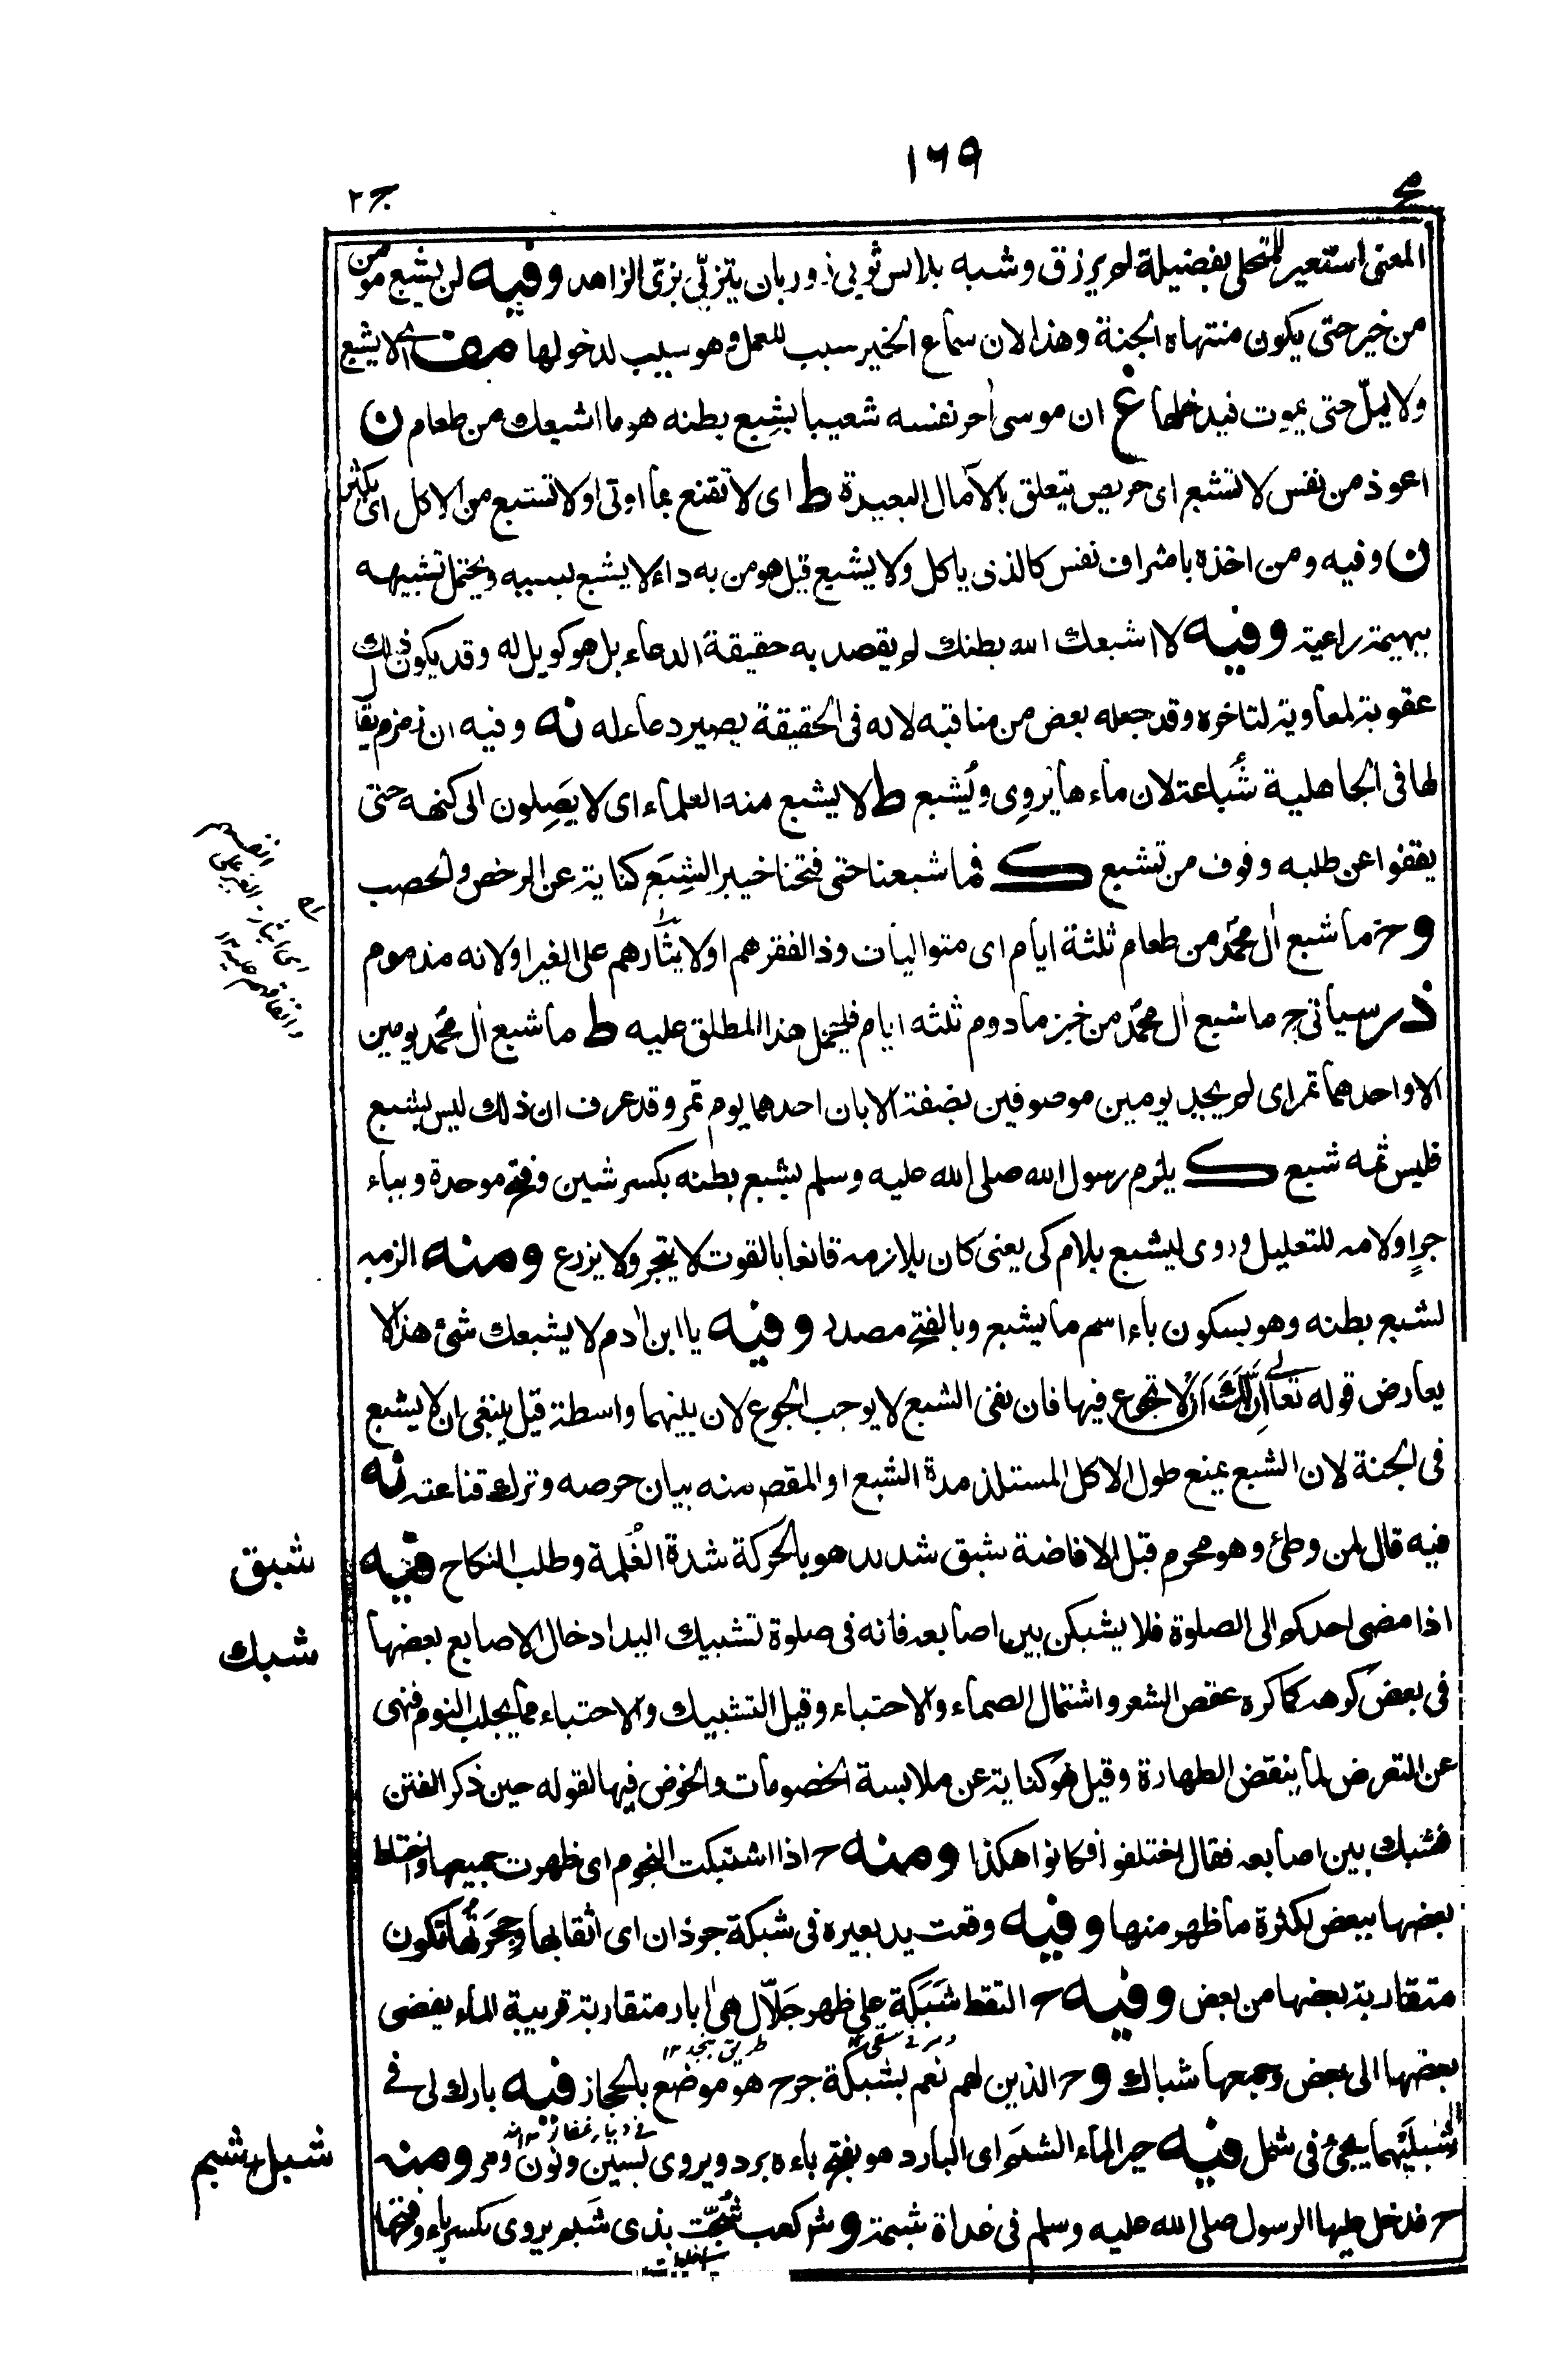 ١٦٩
ج٢
المعنى استعير للمتحلى بفضيلة لم يرزق وشبه بلابس ثوبى زور بان يتزيّى بزىّ الزاهد وفيه لن يشبع مؤمن
من خير حتى يكون منتهاه الجنة وهذا لان سماع الخير سبب للعمل وهو سبب لدخولها مف اى لا يشبع
ولا يملّ حتى يموت فيدخلها غ ان موسى اجر نفسه شعيبا بشِبع بطنه هو ما اشبعك من طعام ن
اعوذ من نفس لا تشبع اى حريص يتعلق بالآمال البعيدة ط اى لا تقنع بما اوتى او لا تشبع من الاكل اى يكثر
ن وفيه ومن اخذه باشراف نفس كالذى ياكل ولا يشبع قيل هو من به داء لا يشبع بسببه ويحتمل تشبيهه
ببهيمة راعية وفيه لا اشبعك الله بطنك لم يقصد به حقيقة الدعاء بل هو كويل له وقد يكون ذلك
عقوبة لمعاوية لتاخره وقد جعله بعض من مناقبه لانه فى الحقيقة يصير دعاء له نه وفيه ان زمزم يقا
لها فى الجاهلية شُباعة لان ماءها يُروِى ويُشبع ط لا يشبع منه العلماء اى لا يَصِلون الى كنهه حتى
يقفوا عن طلبه وقوف من تشبع ك فما شبعنا حتى فتحنا خيبر الشِبَع كناية عن الرخص والخصب
وح ما شبع ال محمّد من طعام ثلثة ايام اى متواليات وذا لفقرهم او لايثارهم على الغير او لانه مذموم
ذر سياتى ح ما شبع ال محمّد من خبز مادوم ثلثه ايام فليحمل هذا المطلق عليه ط ما شبع ال محمّد يومين
الا واحدهما تمر اى لم يجد يومين موصوفين بصفة الا بان احدهما يوم تمر وقد عرف ان ذلك ليس بشبع
فليس ثمه شبع ك يلزم رسول الله صلى الله عليه وسلم بشبع بطنه بكسر شين وفتح موحدة وبباء
جر او لامه للتعليل وروى ليشبع بلام كى يعنى كان يلازمه قانعا بالقوت لا يتجر ولا يزرع ومنه الزمه
لشبع بطنه وهو بسكون باء اسم ما يشبع وبالفتح مصدر وفيه يا ابن ادم لا يشبعك شئ هذا لا
يعارض قوله تعالى اِنَّ لَكَ اَنْ لَا تجوع فيها فان نفى الشبع لا يوجب الجوع لان بينهما واسطة قيل ينبغى ان لا يشبع
فى الجنة لان الشبع يمنع طول الاكل المستلذ مدة الشبع او المقصر منه بيان حرصه وترك قناعته نه
شبق
فيه قال لمن وطئ وهو محرم قبل الافاضة شبق شديد هو بالحركة شدة الغُلمة وطلب النكاح فيه
شبك
اذا مضى احدكم الى الصلوة فلا يشبكن بين اصابعه فانه فى صلوة تشبيك اليد ادخال الاصابع بعضها
فى بعض كره كما كره عقص الشعر واشتمال الصماء والاحتباء وقيل التشبيك والاحتباء مما يجلب النوم فنهى
عن التعرض لما ينقض الطهارة وقيل هو كناية عن ملابسة الخصومات والخوض فيها لقوله حين ذكر الفتن
فشبك بين اصابعه فقال اختلفوا فكانوا هكذا ومنه ح اذا اشتبكت النجوم اى ظهرت جميعها واختلط
بعضها ببعض لكثرة ما ظهر منها وفيه وقعت يد بعيره فى شبكة جرذان اى اثقابها وجِحَرَتُها تكون
متقاربة بعضها من بعض وفيه ح التقط شَبَكة على ظهر جَلّال هى ابار متقاربة قريبة الماء يفضى
طريق بنجد ١٢
بعضها الى بعض وجمعها شباك وح الذين لهم نعم بشبكة جرح هو موضع بالحجاز فيه بارك لى فى
فى ديار غفار
شبل شبم
شبليهما يجئ فى شمل وفيه خير الماء الشبَم اى البارد هو بفتح باءه برد ويروى بسين ونون ومر ومنه
ح فدخل عليها الرسول صلى الله عليه وسلم فى غداة شبمة وش كعب شُجّت بذى شَبم يروى بكسر باء وفتحها